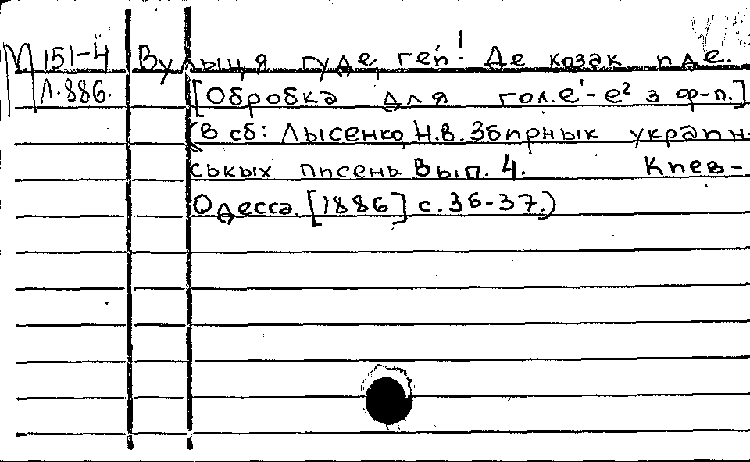 М 151-4 Вулыця гуде, геп! Де козак иде.
Л.886. [Обробка для гол. е¹-е² з ф-п.]
(В сб: Лысенко, Н.В. Збирнык украин-
ськых писень. Вып. 4. Киев-
Одесса. [1886] с. 36-37.)